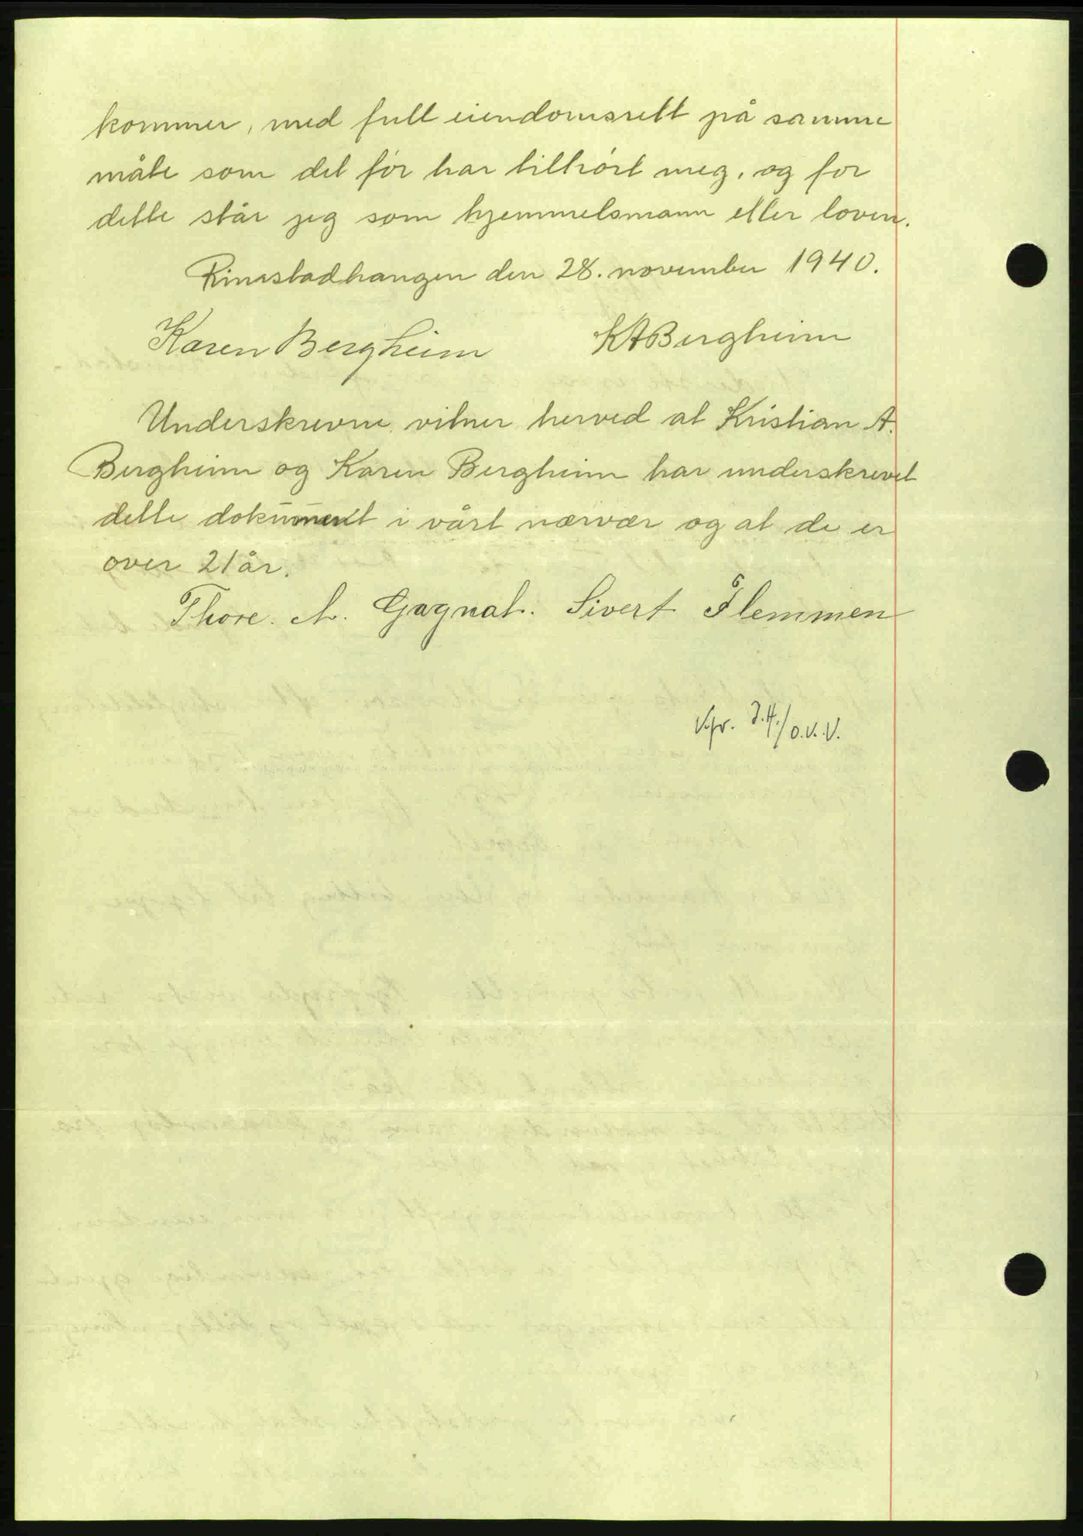 kommer, med full eiendomsrett på samme
måte som det før har tilhørt meg, og for
dette står jeg som hjemmelsmann etter loven.
Rimstadhaugen den 28. november 1940.
Karen Bergheim KABergheim
Underskrevne vitner herved at Kristian A.
Bergheim og Karen Bergheim har underskrevet
dette dokument i vårt nærvær og at de er
over 21 år.
Thore. A. Gagnat. Sivert Flemmen
V.fr. J.H./O.V.V.